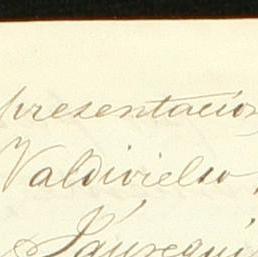 presentación
Valdivielso,
& Jáuregui